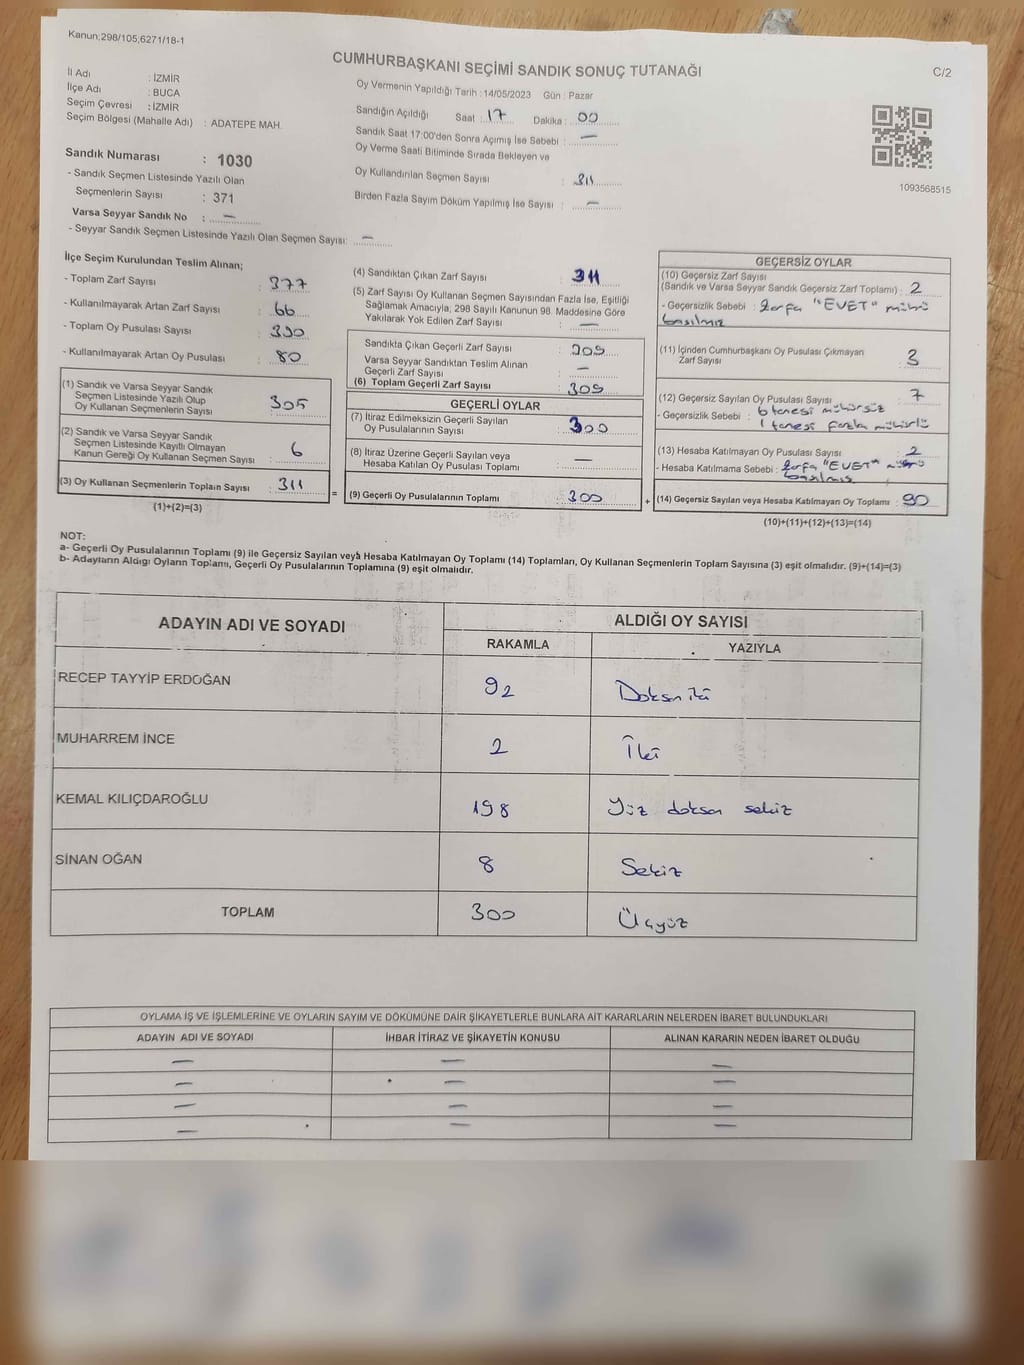 Kanun;298/105,6271/18-1
CUMHURBAŞKANI SEÇİMİ SANDIK SONUÇ TUTANAĞI
C/2
İl Adı : İZMİR
İlçe Adı : BUCA
Seçim Çevresi : İZMİR
Seçim Bölgesi (Mahalle Adı) : ADATEPE MAH.
Oy Vermenin Yapıldığı Tarih : 14/05/2023 Gün : Pazar
Sandığın Açıldığı Saat : 17 Dakika : 00
Sandık Saat 17:00'den Sonra Açılmış İse Sebebi : —
Oy Verme Saati Bitiminde Sırada Bekleyen ve
Oy Kullandırılan Seçmen Sayısı : 311
Birden Fazla Sayım Döküm Yapılmış İse Sayısı : —
1093568515
Sandık Numarası : 1030
- Sandık Seçmen Listesinde Yazılı Olan
Seçmenlerin Sayısı : 371
Varsa Seyyar Sandık No : —
- Seyyar Sandık Seçmen Listesinde Yazılı Olan Seçmen Sayısı: —
İlçe Seçim Kurulundan Teslim Alınan;
- Toplam Zarf Sayısı : 377
- Kullanılmayarak Artan Zarf Sayısı : 66
- Toplam Oy Pusulası Sayısı : 390
- Kullanılmayarak Artan Oy Pusulası : 80
(1) Sandık ve Varsa Seyyar Sandık
Seçmen Listesinde Yazılı Olup
Oy Kullanan Seçmenlerin Sayısı : 305
(2) Sandık ve Varsa Seyyar Sandık
Seçmen Listesinde Kayıtlı Olmayan
Kanun Gereği Oy Kullanan Seçmen Sayısı : 6
(3) Oy Kullanan Seçmenlerin Toplam Sayısı : 311
(1)+(2)=(3)
(4) Sandıktan Çıkan Zarf Sayısı : 311
(5) Zarf Sayısı Oy Kullanan Seçmen Sayısından Fazla İse, Eşitliği
Sağlamak Amacıyla, 298 Sayılı Kanunun 98. Maddesine Göre
Yakılarak Yok Edilen Zarf Sayısı : —
Sandıkta Çıkan Geçerli Zarf Sayısı : 309
Varsa Seyyar Sandıktan Teslim Alınan
Geçerli Zarf Sayısı : —
(6) Toplam Geçerli Zarf Sayısı : 309
GEÇERLİ OYLAR
(7) İtiraz Edilmeksizin Geçerli Sayılan
Oy Pusulalarının Sayısı : 300
(8) İtiraz Üzerine Geçerli Sayılan veya
Hesaba Katılan Oy Pusulası Toplamı : —
= (9) Geçerli Oy Pusulalarının Toplamı : 300
GEÇERSİZ OYLAR
(10) Geçersiz Zarf Sayısı
(Sandık ve Varsa Seyyar Sandık Geçersiz Zarf Toplamı) : 2
- Geçersizlik Sebebi : Zarfa "EVET" mührü
basılmış
(11) İçinden Cumhurbaşkanı Oy Pusulası Çıkmayan
Zarf Sayısı : 3
(12) Geçersiz Sayılan Oy Pusulası Sayısı : 7
- Geçersizlik Sebebi : 6 tanesi mühürsüz
1 tanesi fazla mühürlü
(13) Hesaba Katılmayan Oy Pusulası Sayısı : 2
- Hesaba Katılmama Sebebi : Zarfa "EVET" mührü
basılmış
+ (14) Geçersiz Sayılan veya Hesaba Katılmayan Oy Toplamı :
(10)+(11)+(12)+(13)=(14)
NOT:
a- Geçerli Oy Pusulalarının Toplamı (9) ile Geçersiz Sayılan veya Hesaba Katılmayan Oy Toplamı (14) Toplamları, Oy Kullanan Seçmenlerin Toplam Sayısına (3) eşit olmalıdır. (9)+(14)=(3)
b- Adayların Aldığı Oyların Toplamı, Geçerli Oy Pusulalarının Toplamına (9) eşit olmalıdır.
ADAYIN ADI VE SOYADI
ALDIĞI OY SAYISI
RAKAMLA YAZIYLA
RECEP TAYYİP ERDOĞAN 92 Doksan iki
MUHARREM İNCE 2 İki
KEMAL KILIÇDAROĞLU 198 Yüz doksan sekiz
SİNAN OĞAN 8 Sekiz
TOPLAM 300 Üçyüz
OYLAMA İŞ VE İŞLEMLERİNE VE OYLARIN SAYIM VE DÖKÜMÜNE DAİR ŞİKAYETLERLE BUNLARA AİT KARARLARIN NELERDEN İBARET BULUNDUKLARI
ADAYIN ADI VE SOYADI İHBAR İTİRAZ VE ŞİKAYETİN KONUSU ALINAN KARARIN NEDEN İBARET OLDUĞU
— — —
— — —
— — —
— — —